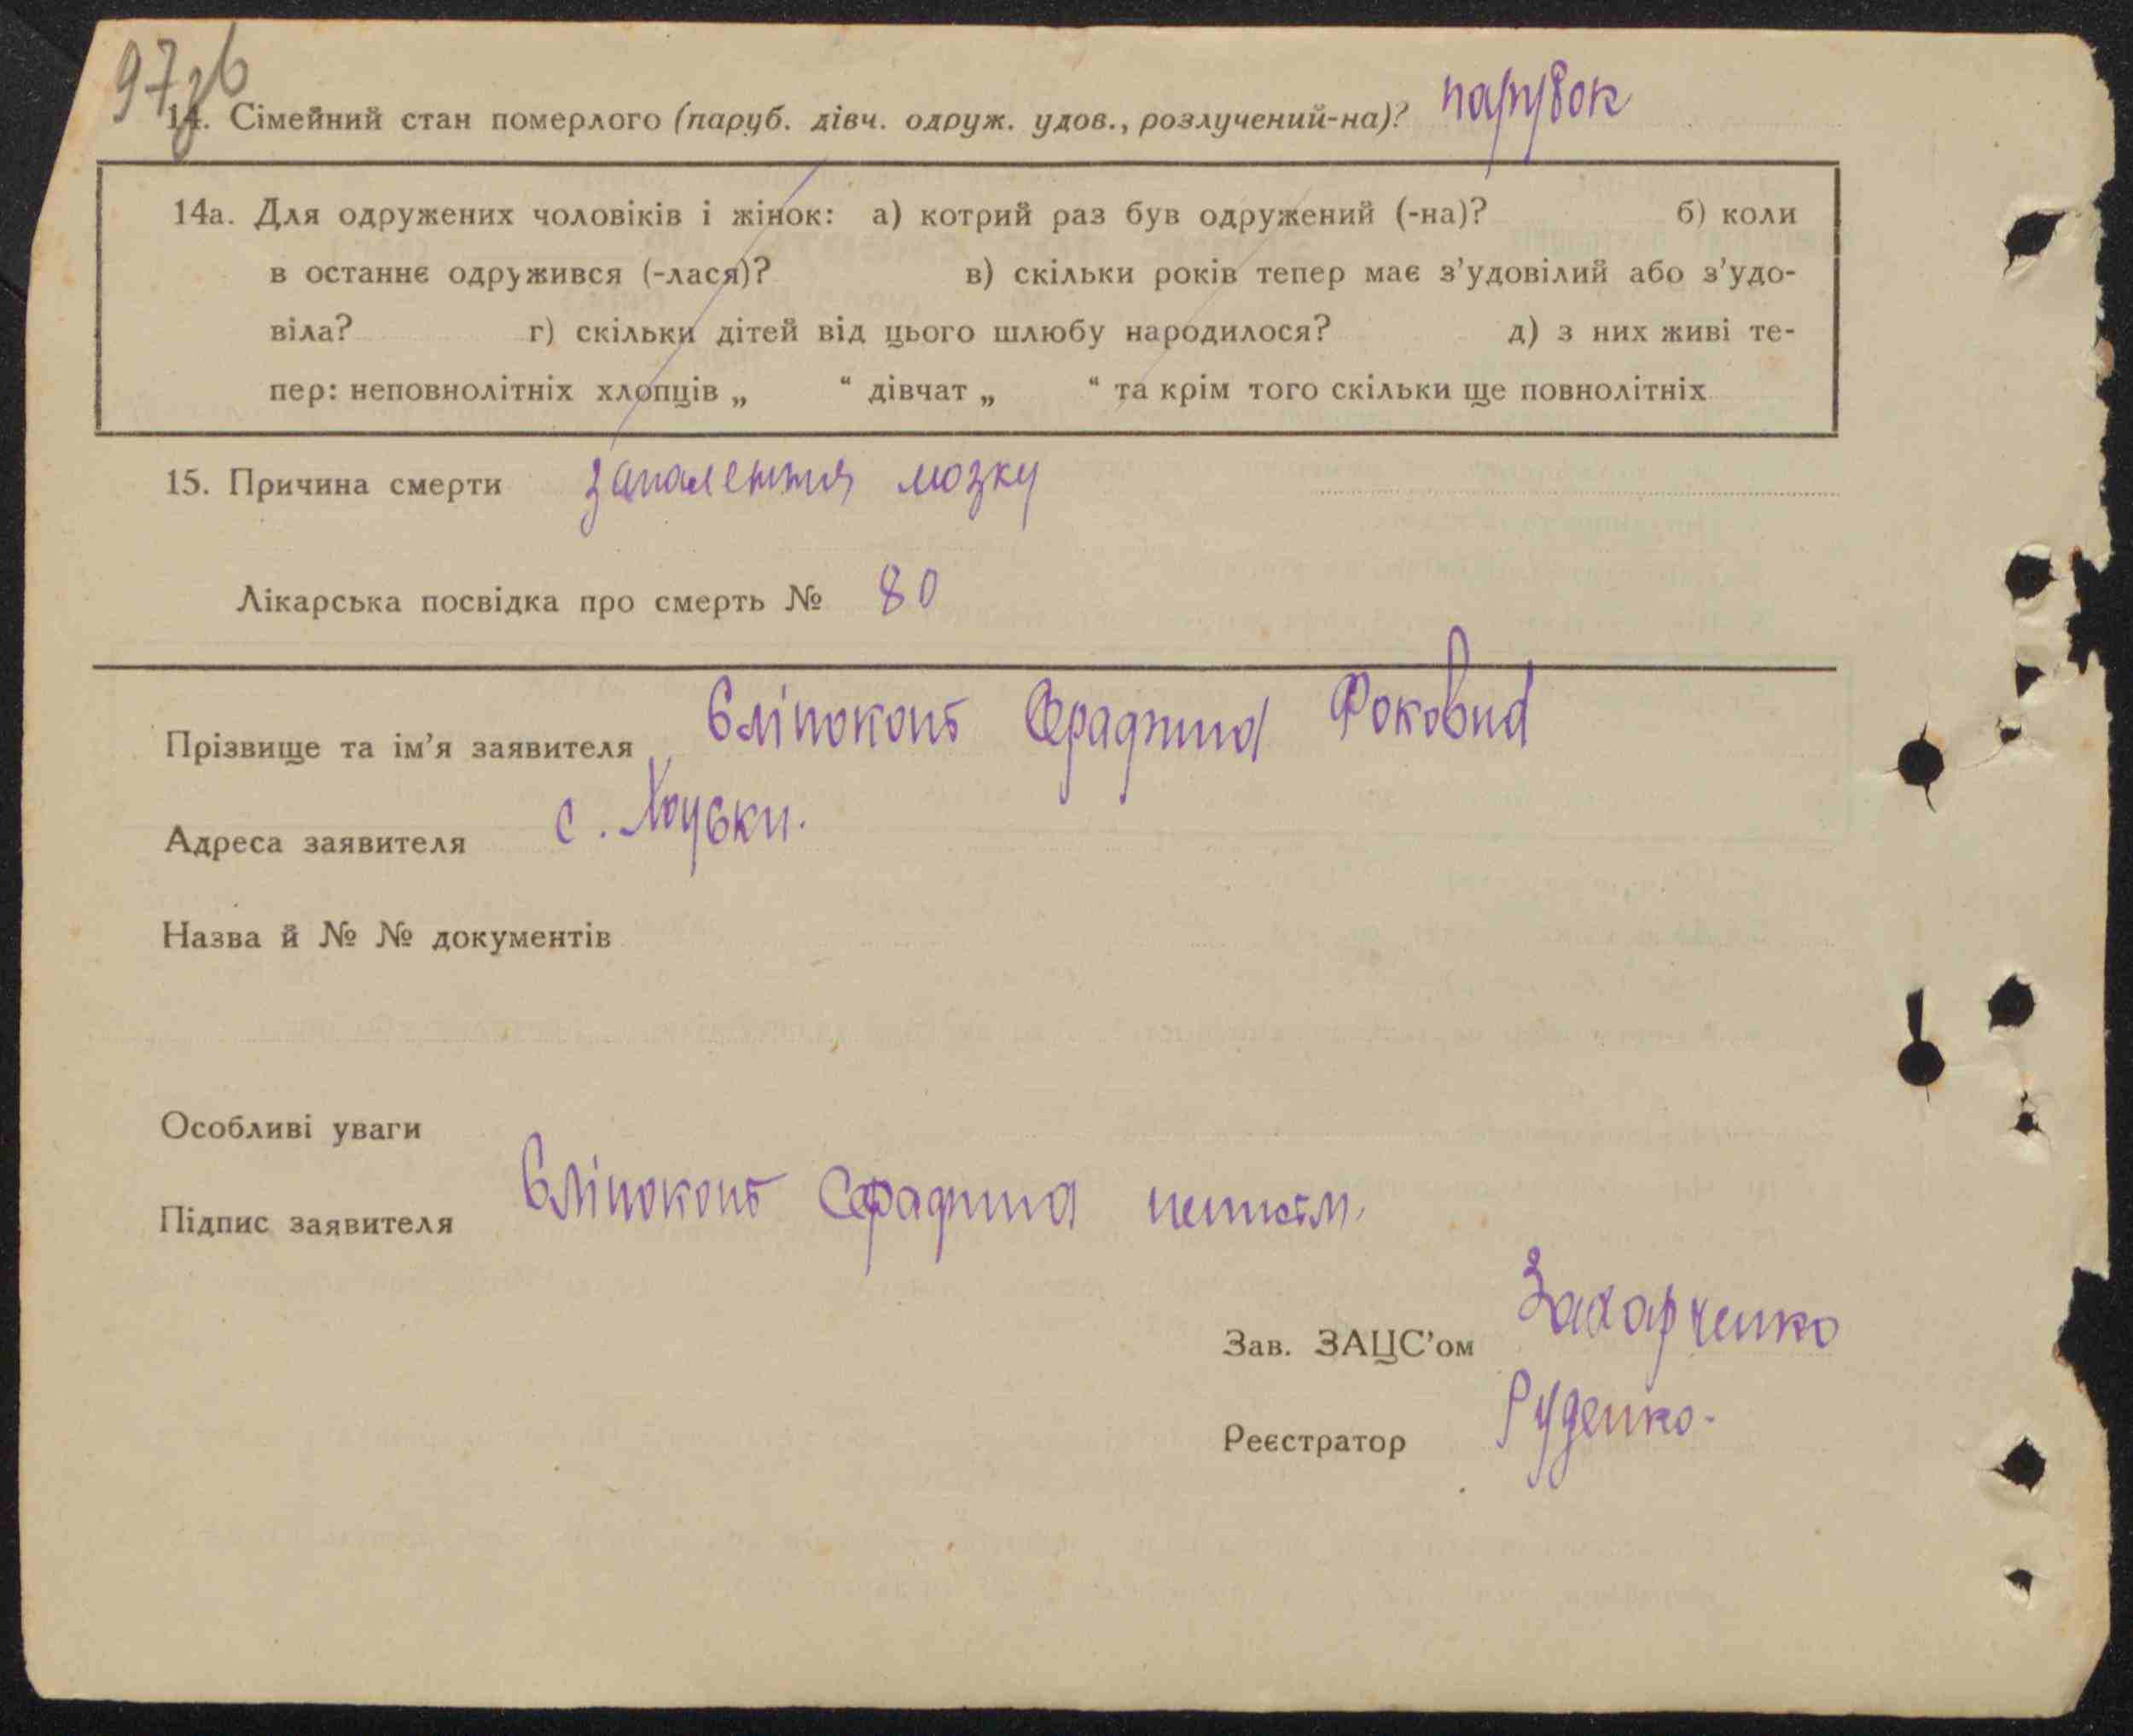 97зв
14. Сімейний стан померлого (паруб. дівч. одруж. удов., розлучений-на)? парубок
14а. Для одружених чоловіків і жінок: а) котрий раз був одружений (-на)? б) коли
в останнє одружився (-лася)? в) скільки років тепер має з'удовілий або з'удо-
віла? г) скільки дітей від цього шлюбу народилося? д) з них живі те-
пер: неповнолітніх хлопців „ “ дівчат „ “ та крім того скільки ще повнолітніх
15. Причина смерти запалення мозку
Лікарська посвідка про смерть № 80
Прізвище та ім'я заявителя Фоковна
Адреса заявителя с.
Назва й № № документів
Особливі уваги
Підпис заявителя
Зав. ЗАЦС'ом Захарченко
Реєстратор Руденко.